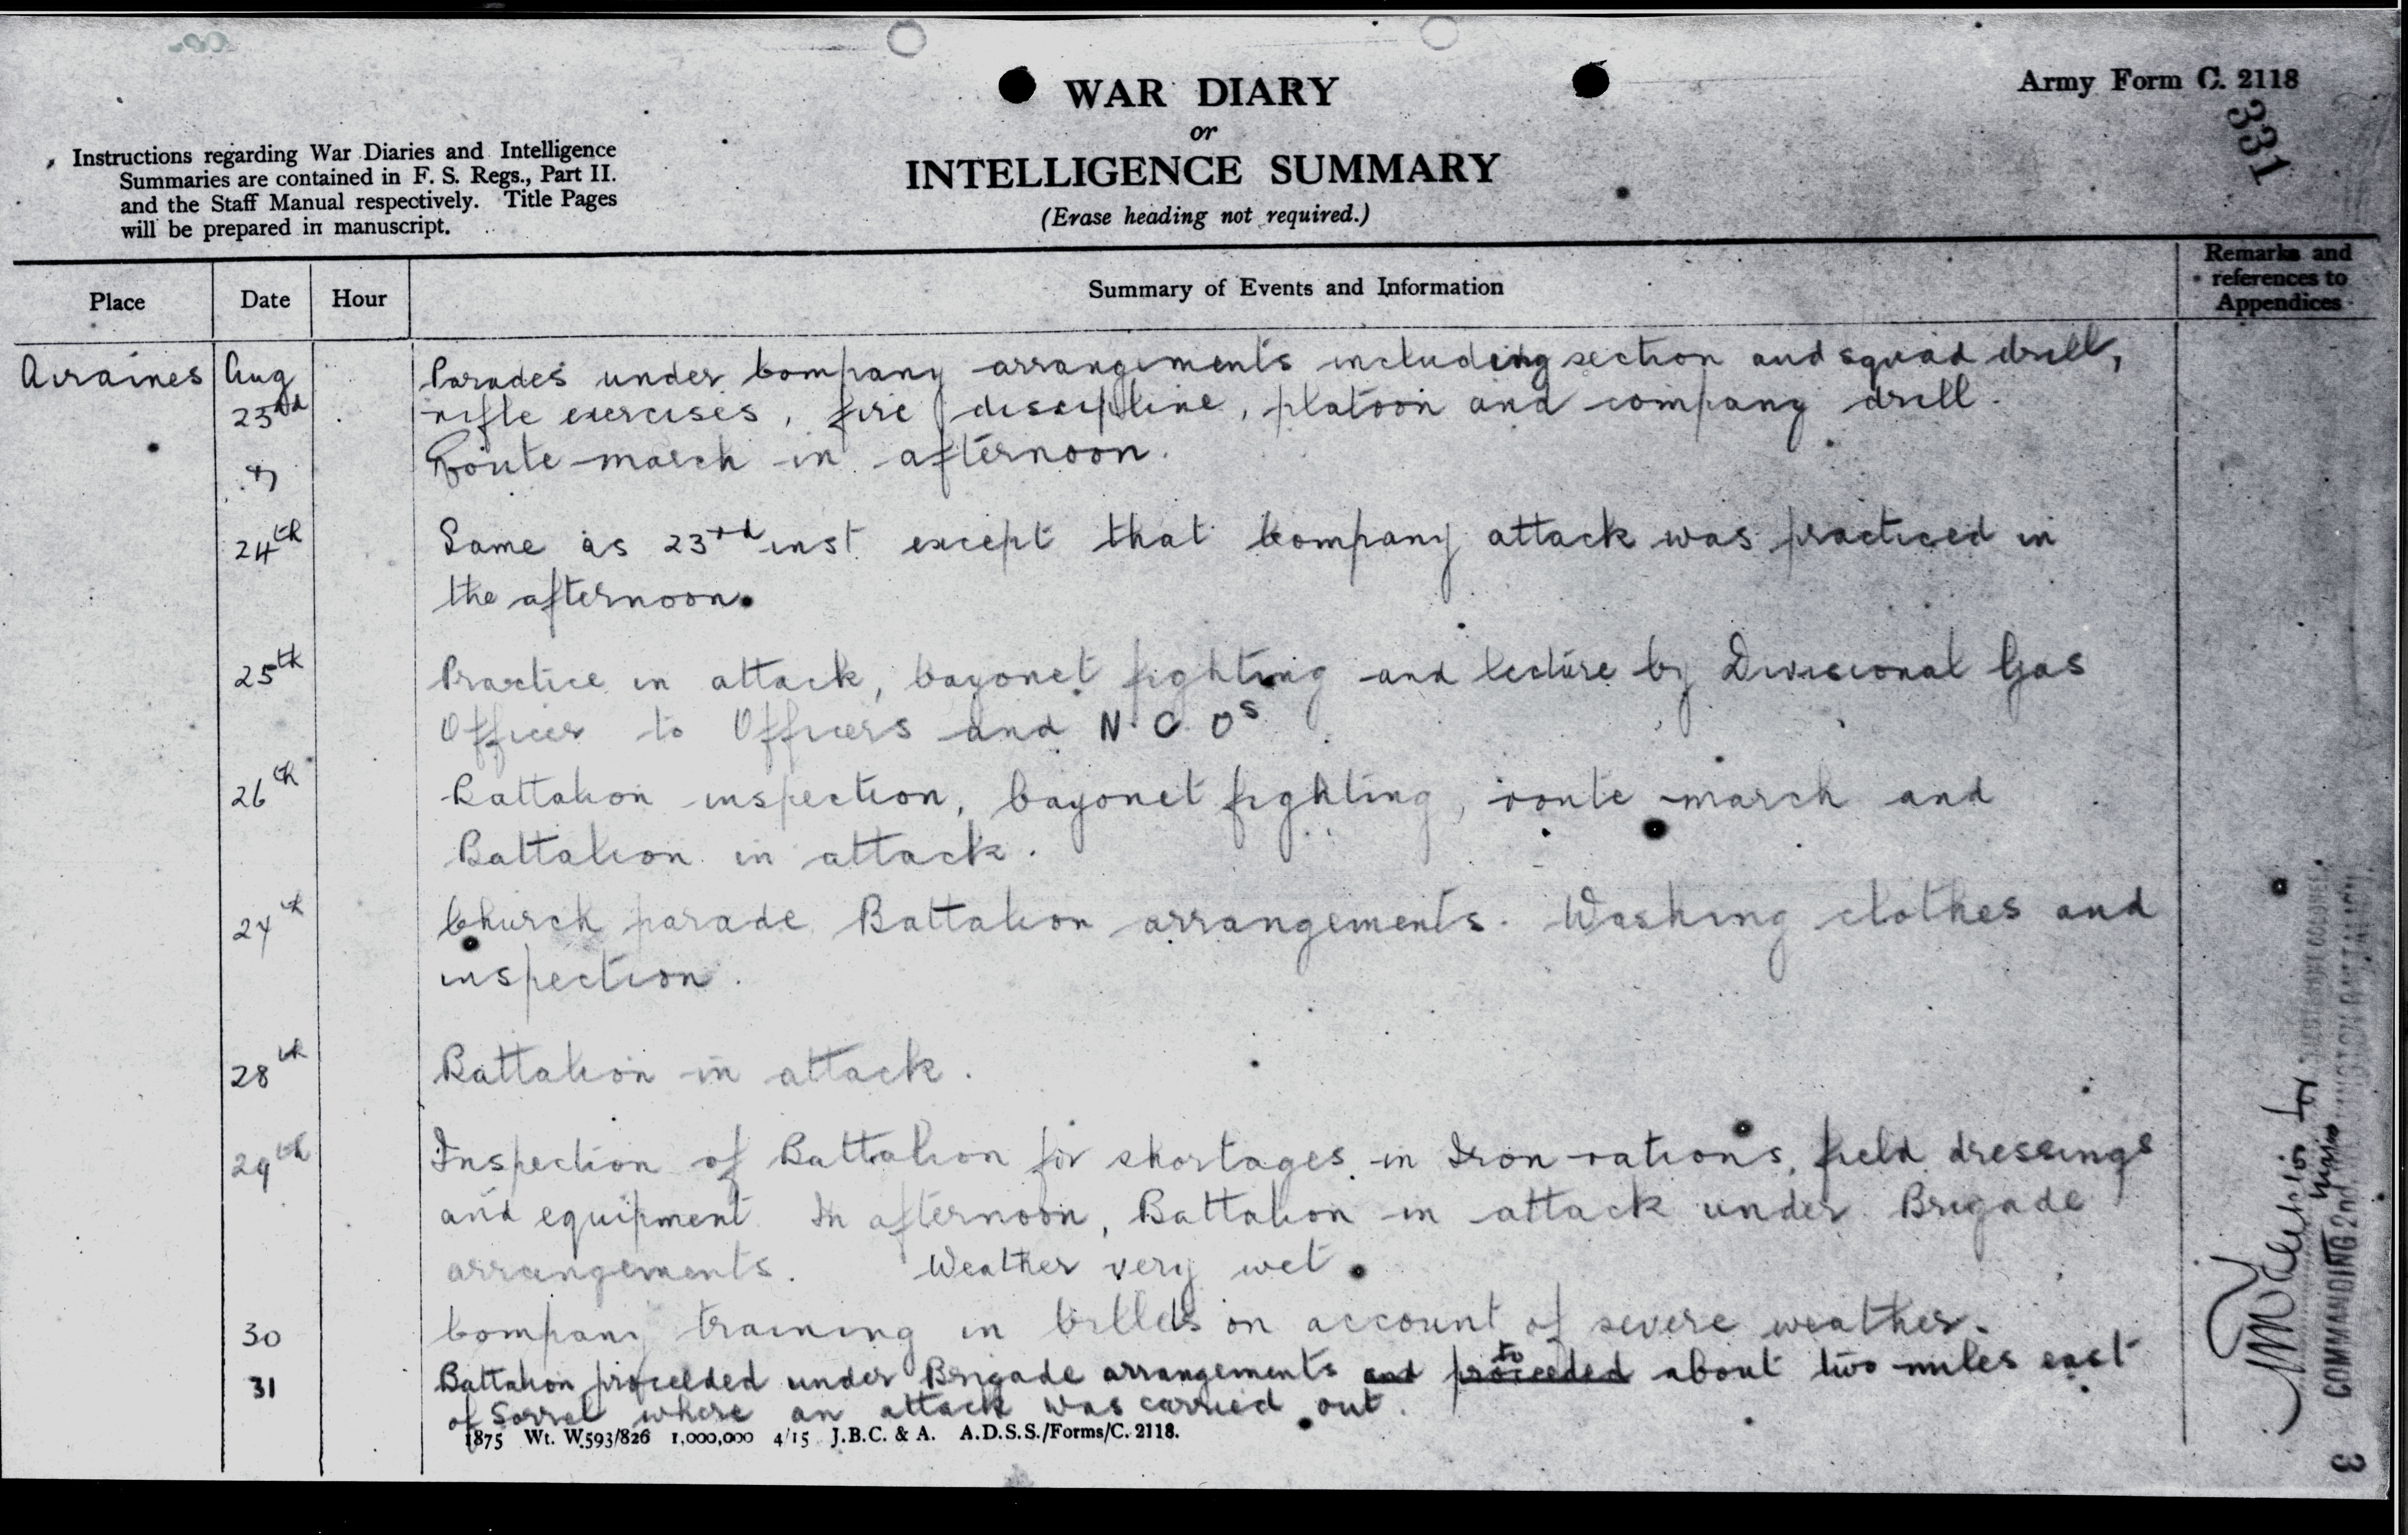 WAR DIARY
or
INTELLIGENCE SUMMARY
(Erase heading not required.)
Army Form C. 2118
331
Instructions regarding War Diaries and Intelligence
Summaries are contained in F. S. Regs., Part II.
and the Staff Manual respectively. Title Pages
will be prepared in manuscript.
Place
Date
Hour
Summary of Events and Information
Remarks and
references to
Appendices
Airaines Aug Parades under Company arrangements including section and squad drill,
23rd rifle exercises, fire discipline, platoon and company drill.
Route march in afternoon.
24th Same as 23rd inst except that Company attack was practiced in
the afternoon.
25th Practice in attack, bayonet fighting and lecture by Divisional Gas
Officer to Officers and N.C.Os
26th Battalion inspection, bayonet fighting, route march and
Battalion in attack.
27th Church parade Battalion arrangements. Washing clothes and
inspection.
28th Battalion in attack.
29th Inspection of Battalion for shortages in Iron rations, field dressings
and equipment. In afternoon, Battalion in attack under Brigade
arrangements. Weather very wet.
30 Company training in billets on account of severe weather.
31 Battalion proceeded under Brigade arrangements and proceeded to about two miles east
of Sorrel where an attack was carried out.
1875 Wt. W593/826 1,000,000 4/15 J.B.C. & A. A.D.S.S./Forms/C. 2118.
for LIEUTENANT COLONEL,
Major
COMMANDING 2nd. BATTALION
3